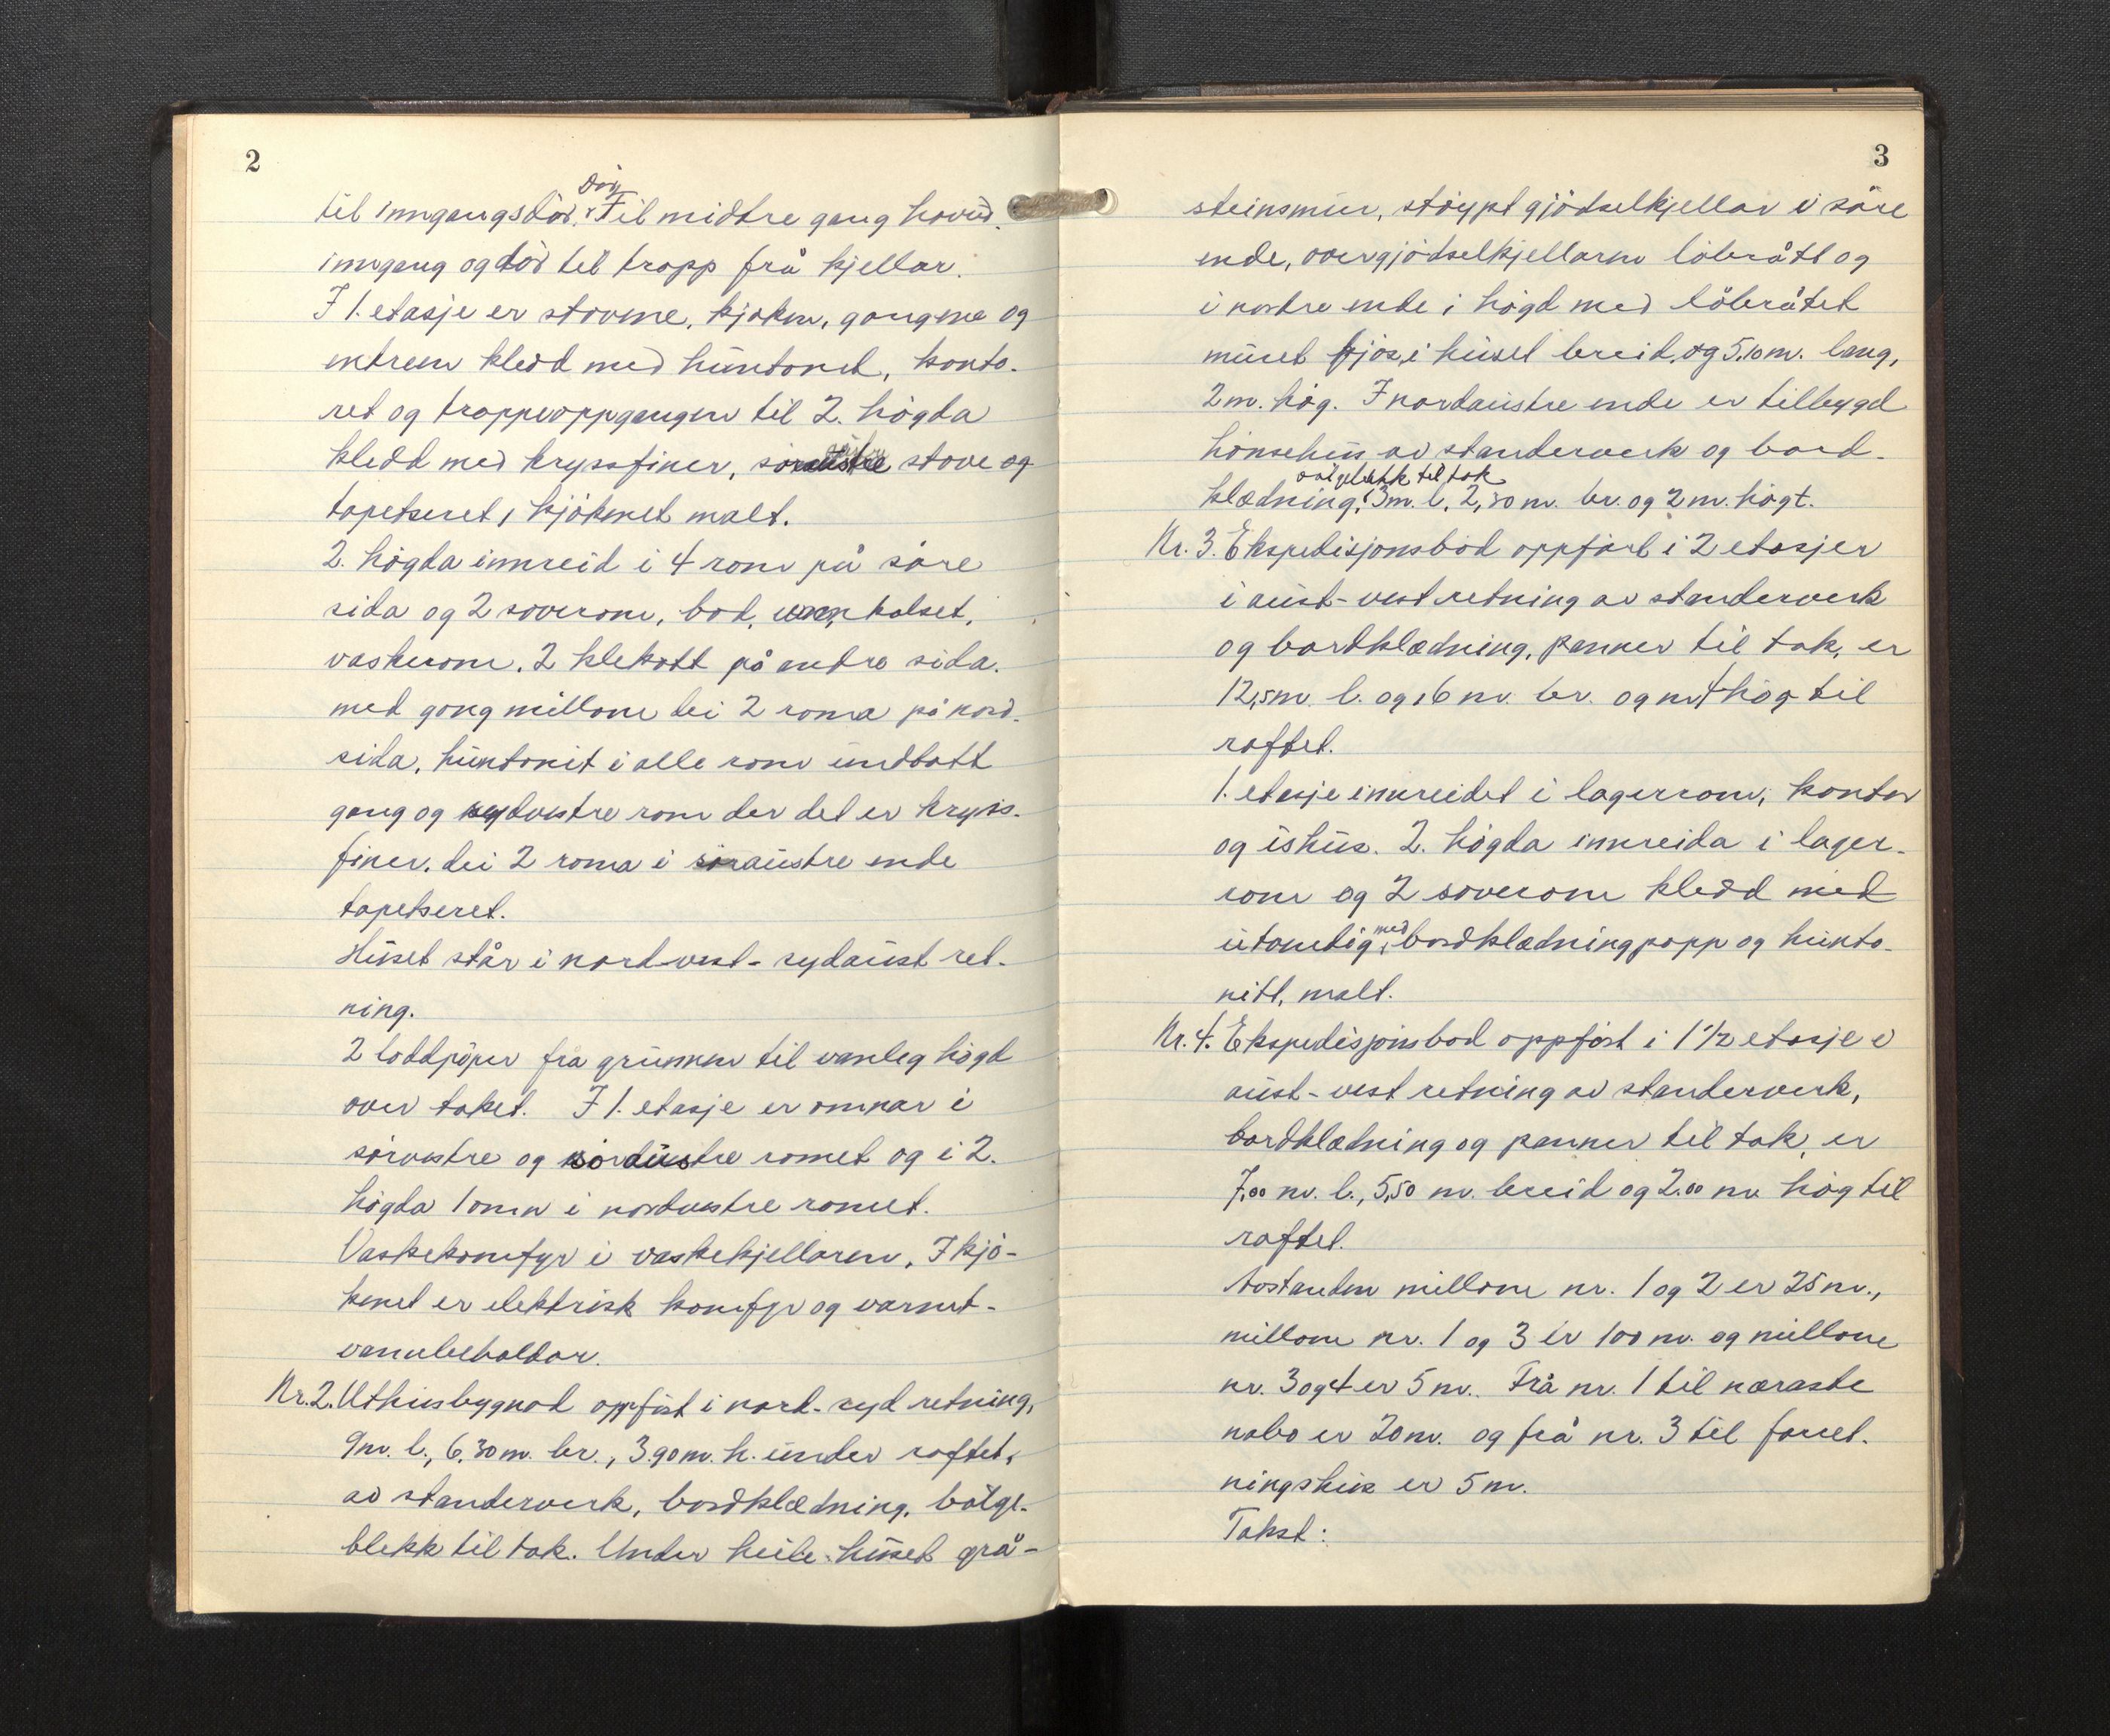 2
til inngangsdör. Til midtre gang hovud.
inngang og dör til tropp frå kjellar.
I 1. etasje er stovene, kjøken, gangene og
entreen kledd med huntonit, konto-
ret og troppeoppgangen til 2. högda
kledd med kryssfiner, stove og
tapetseret, kjökenet malt.
2. högda innreid i 4 rom på söre
sida og 2 soverom, bod, kolset,
vaskerom. 2 klekott på andre sida.
med gong millom dei 2 roma på nord-
sida, huntonit i alle rom undtatt
gang og sydvestre rom der det er kryss-
finer. dei 2 roma i söraustre ende
tapetseret.
Huset står i nordvest-sydaust ret-
ning.
2 loddpiper fra grunnen til vanleg högd
over taket. I 1. etasje er omnar i
sörvestre og romet og i 2.
högda 1 omn i nordvestre romet.
Vaskekomfyr i vaskekjellaren. I kjö-
kenet er elektrisk komfyr og varmt-
vannbeholdar.
Nr. 2. Uthusbygnad oppfört i nord-syd retning,
9 m. l., 6.30 m. br., 3.90 m. h. under raftet,
av standerverk, bordklædning, bölge-
blekk til tak. Under heile huset grå-
3
steinsmur, stöypt gjödselkjellar i söre
ende, over gjödselkjellaren låbrått og
i nordre ende i högd med låbråtet
muret fjös, i huset breid, og 5,10 m. lang,
2 m. hög. I nordaustre ende er tilbygd
hönsehus av standerverk og bord-
bölgeblekk til tak
klædning, 3 m. l, 2,30 m. br. og 2 m. högt.
Nr. 3. Ekspedisjonsbod oppfört i 2 etasjer
i aust-vest retning av standerverk
og bordklædning, panner til tak, er
12,5 m. l. og 6 m. br. og 4 hög til
raftet.
1. etasje innreidet i lagerrom, kontor
og ishus. 2. högda innreida i lager-
rom og 2 soverom kledd med
med
utvendig bordklædning papp og hunto-
nitt, malt.
Nr. 4. Ekspedisjonsbod oppfört i 1 1/2 etasje i
aust-vest retning av standerverk,
bordklædning og panner til tak, er
7,00 m. l., 5,50 m. breid og 2.00 m. hög til
raftet.
Avstanden millom nr. 1 og 2 er 25 m.,
millom nr. 1 og 3 er 100 m. og millom
nr. 3 og 4 er 5 m. Frå nr. 1 til næraste
nabo er 20 m. og frå nr. 3 til forret-
ningshus er 5 m.
Takst: